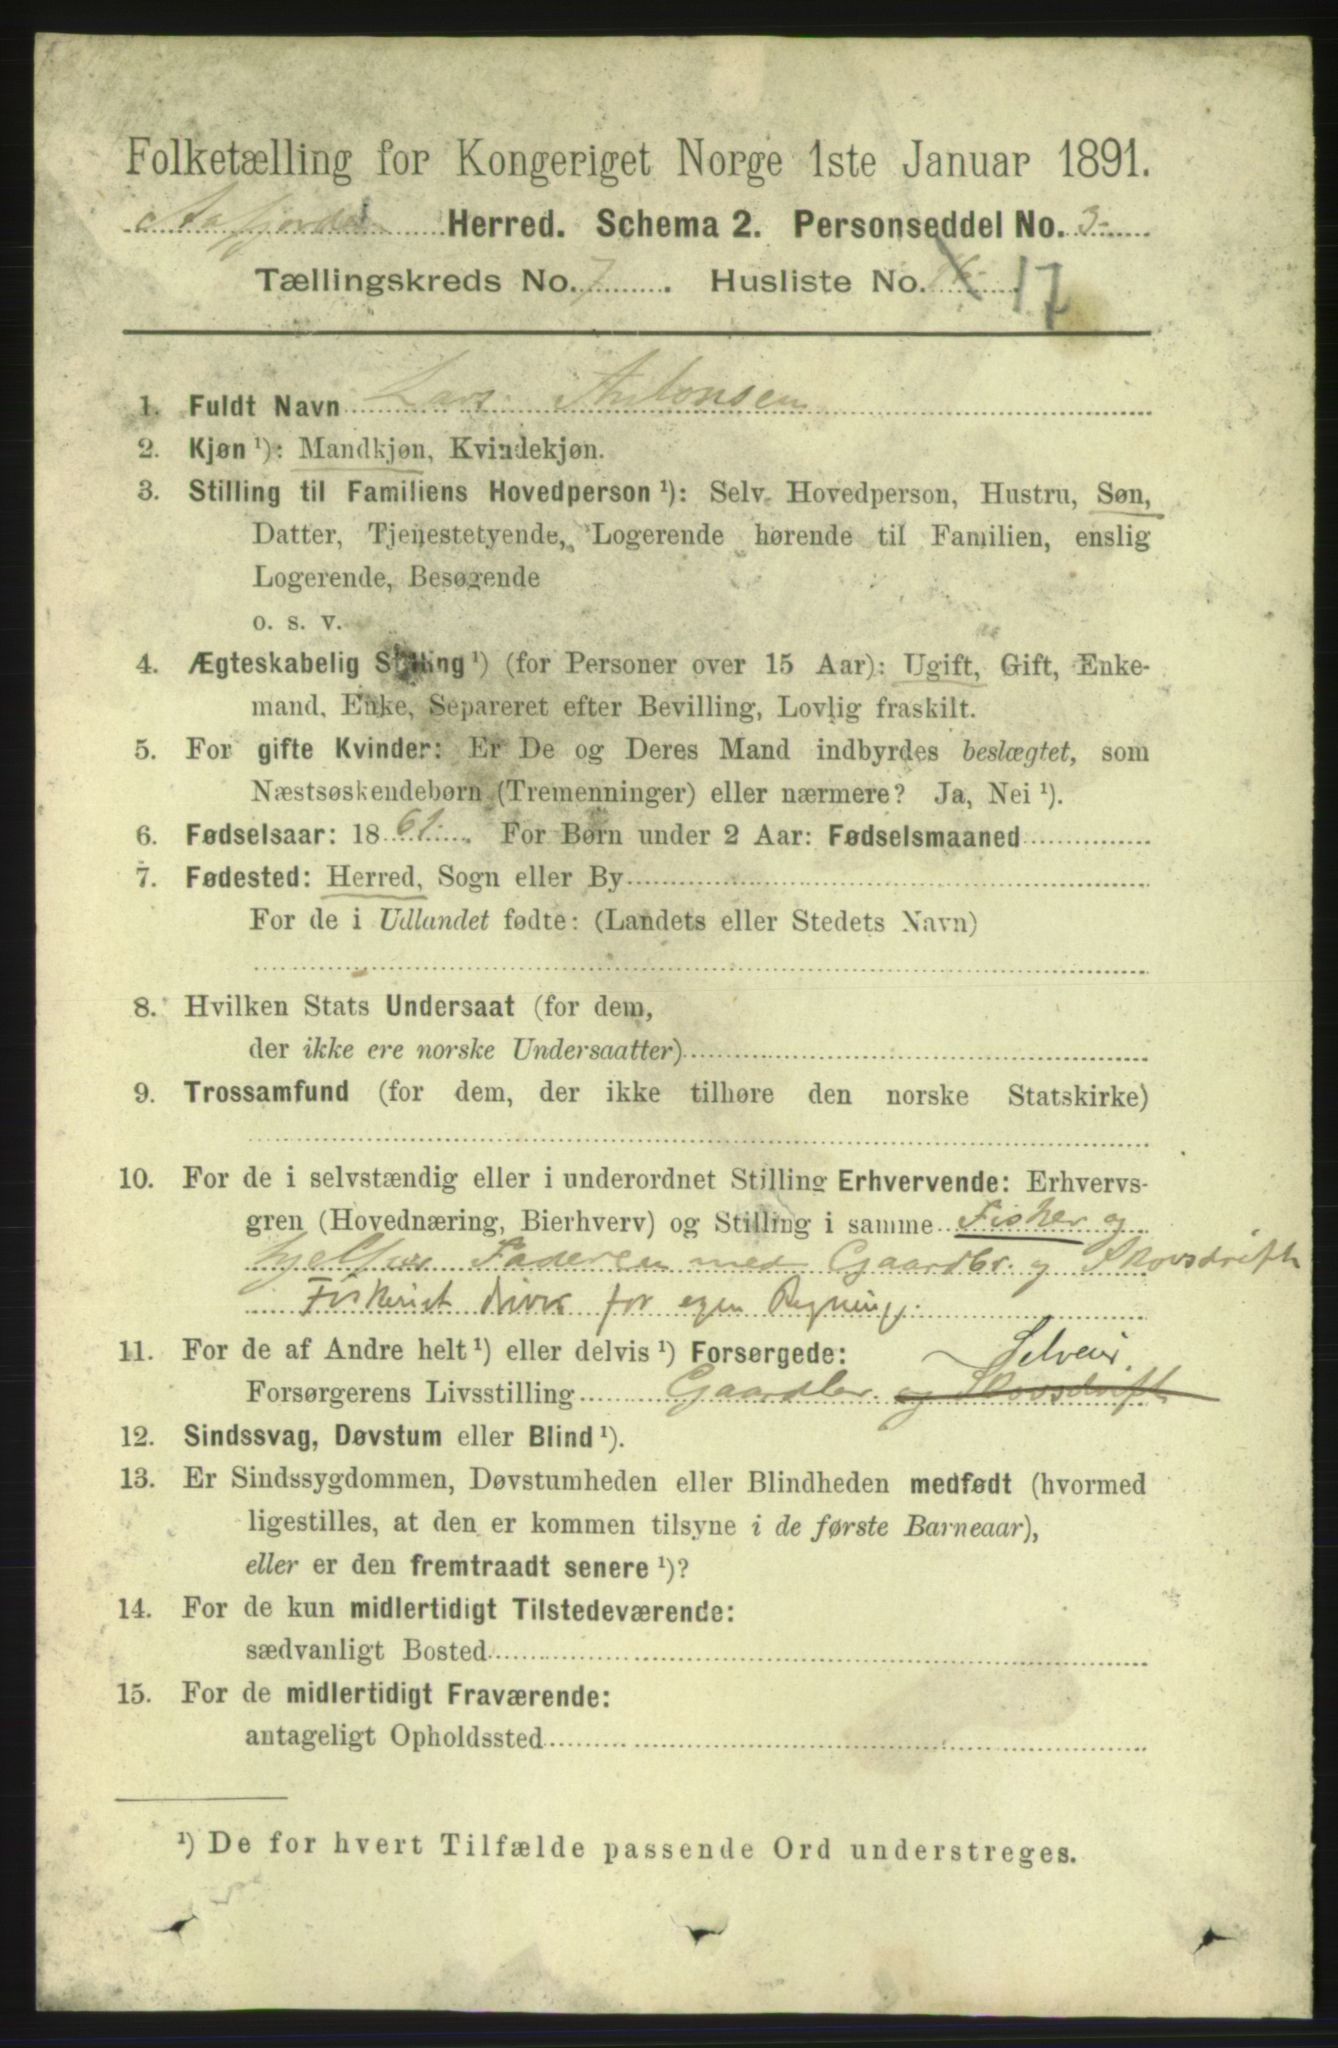 Folketælling for Kongeriget Norge 1ste Januar 1891.
Aafjorden Herred. Schema 2. Personseddel No. 3
Tællingskreds No. 7. Husliste No. 16 17
1. Fuldt Navn Lars Antonsen
2. Kjøn ¹): Mandkjøn, Kvindekjøn.
3. Stilling til Familiens Hovedperson ¹): Selv Hovedperson, Hustru, Søn,
Datter, Tjenestetyende, Logerende hørende til Familien, enslig
Logerende, Besøgende
o. s. v.
4. Ægteskabelig Stilling ¹) (for Personer over 15 Aar): Ugift, Gift, Enke-
mand, Enke, Separeret efter Bevilling, Lovlig fraskilt.
5. For gifte Kvinder: Er De og Deres Mand indbyrdes beslægtet, som
Næstsøskendebørn (Tremenninger) eller nærmere? Ja, Nei ¹).
6. Fødselsaar: 1861. For Børn under 2 Aar: Fødselsmaaned
7. Fødested: Herred, Sogn eller By
For de i Udlandet fødte: (Landets eller Stedets Navn)
8. Hvilken Stats Undersaat (for dem,
der ikke ere norske Undersaatter)
9. Trossamfund (for dem, der ikke tilhøre den norske Statskirke)
10. For de i selvstændig eller i underordnet Stilling Erhvervende: Erhvervs-
gren (Hovednæring, Bierhverv) og Stilling i samme Fisker og
hjelper Faderen med Gaardbr. og Skovsdrift
Fiskeriet drives for egen Regning.
11. For de af Andre helt ¹) eller delvis ¹) Forsørgede: Selveier
Forsørgerens Livsstilling Gaardbr. og Skovsdrift
12. Sindssvag, Døvstum eller Blind ¹).
13. Er Sindssygdommen, Døvstumheden eller Blindheden medfødt (hvormed
ligestilles, at den er kommen tilsyne i de første Barneaar),
eller er den fremtraadt senere ¹)?
14. For de kun midlertidigt Tilstedeværende:
sædvanligt Bosted
15. For de midlertidigt Fraværende:
antageligt Opholdssted
¹) De for hvert Tilfælde passende Ord understreges.